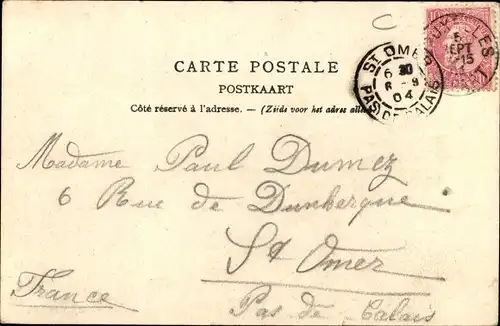 CARTE POSTALE
POSTKAART
Côté réservé à l'adresse. — (Zijds voor het adres alleen
ST OMER
6
8 - 9
04
PAS DE CALAIS
SEPT
Madame Paul Dumez
6 Rue de Dunkerque
St Omer
France
Pas de Calais